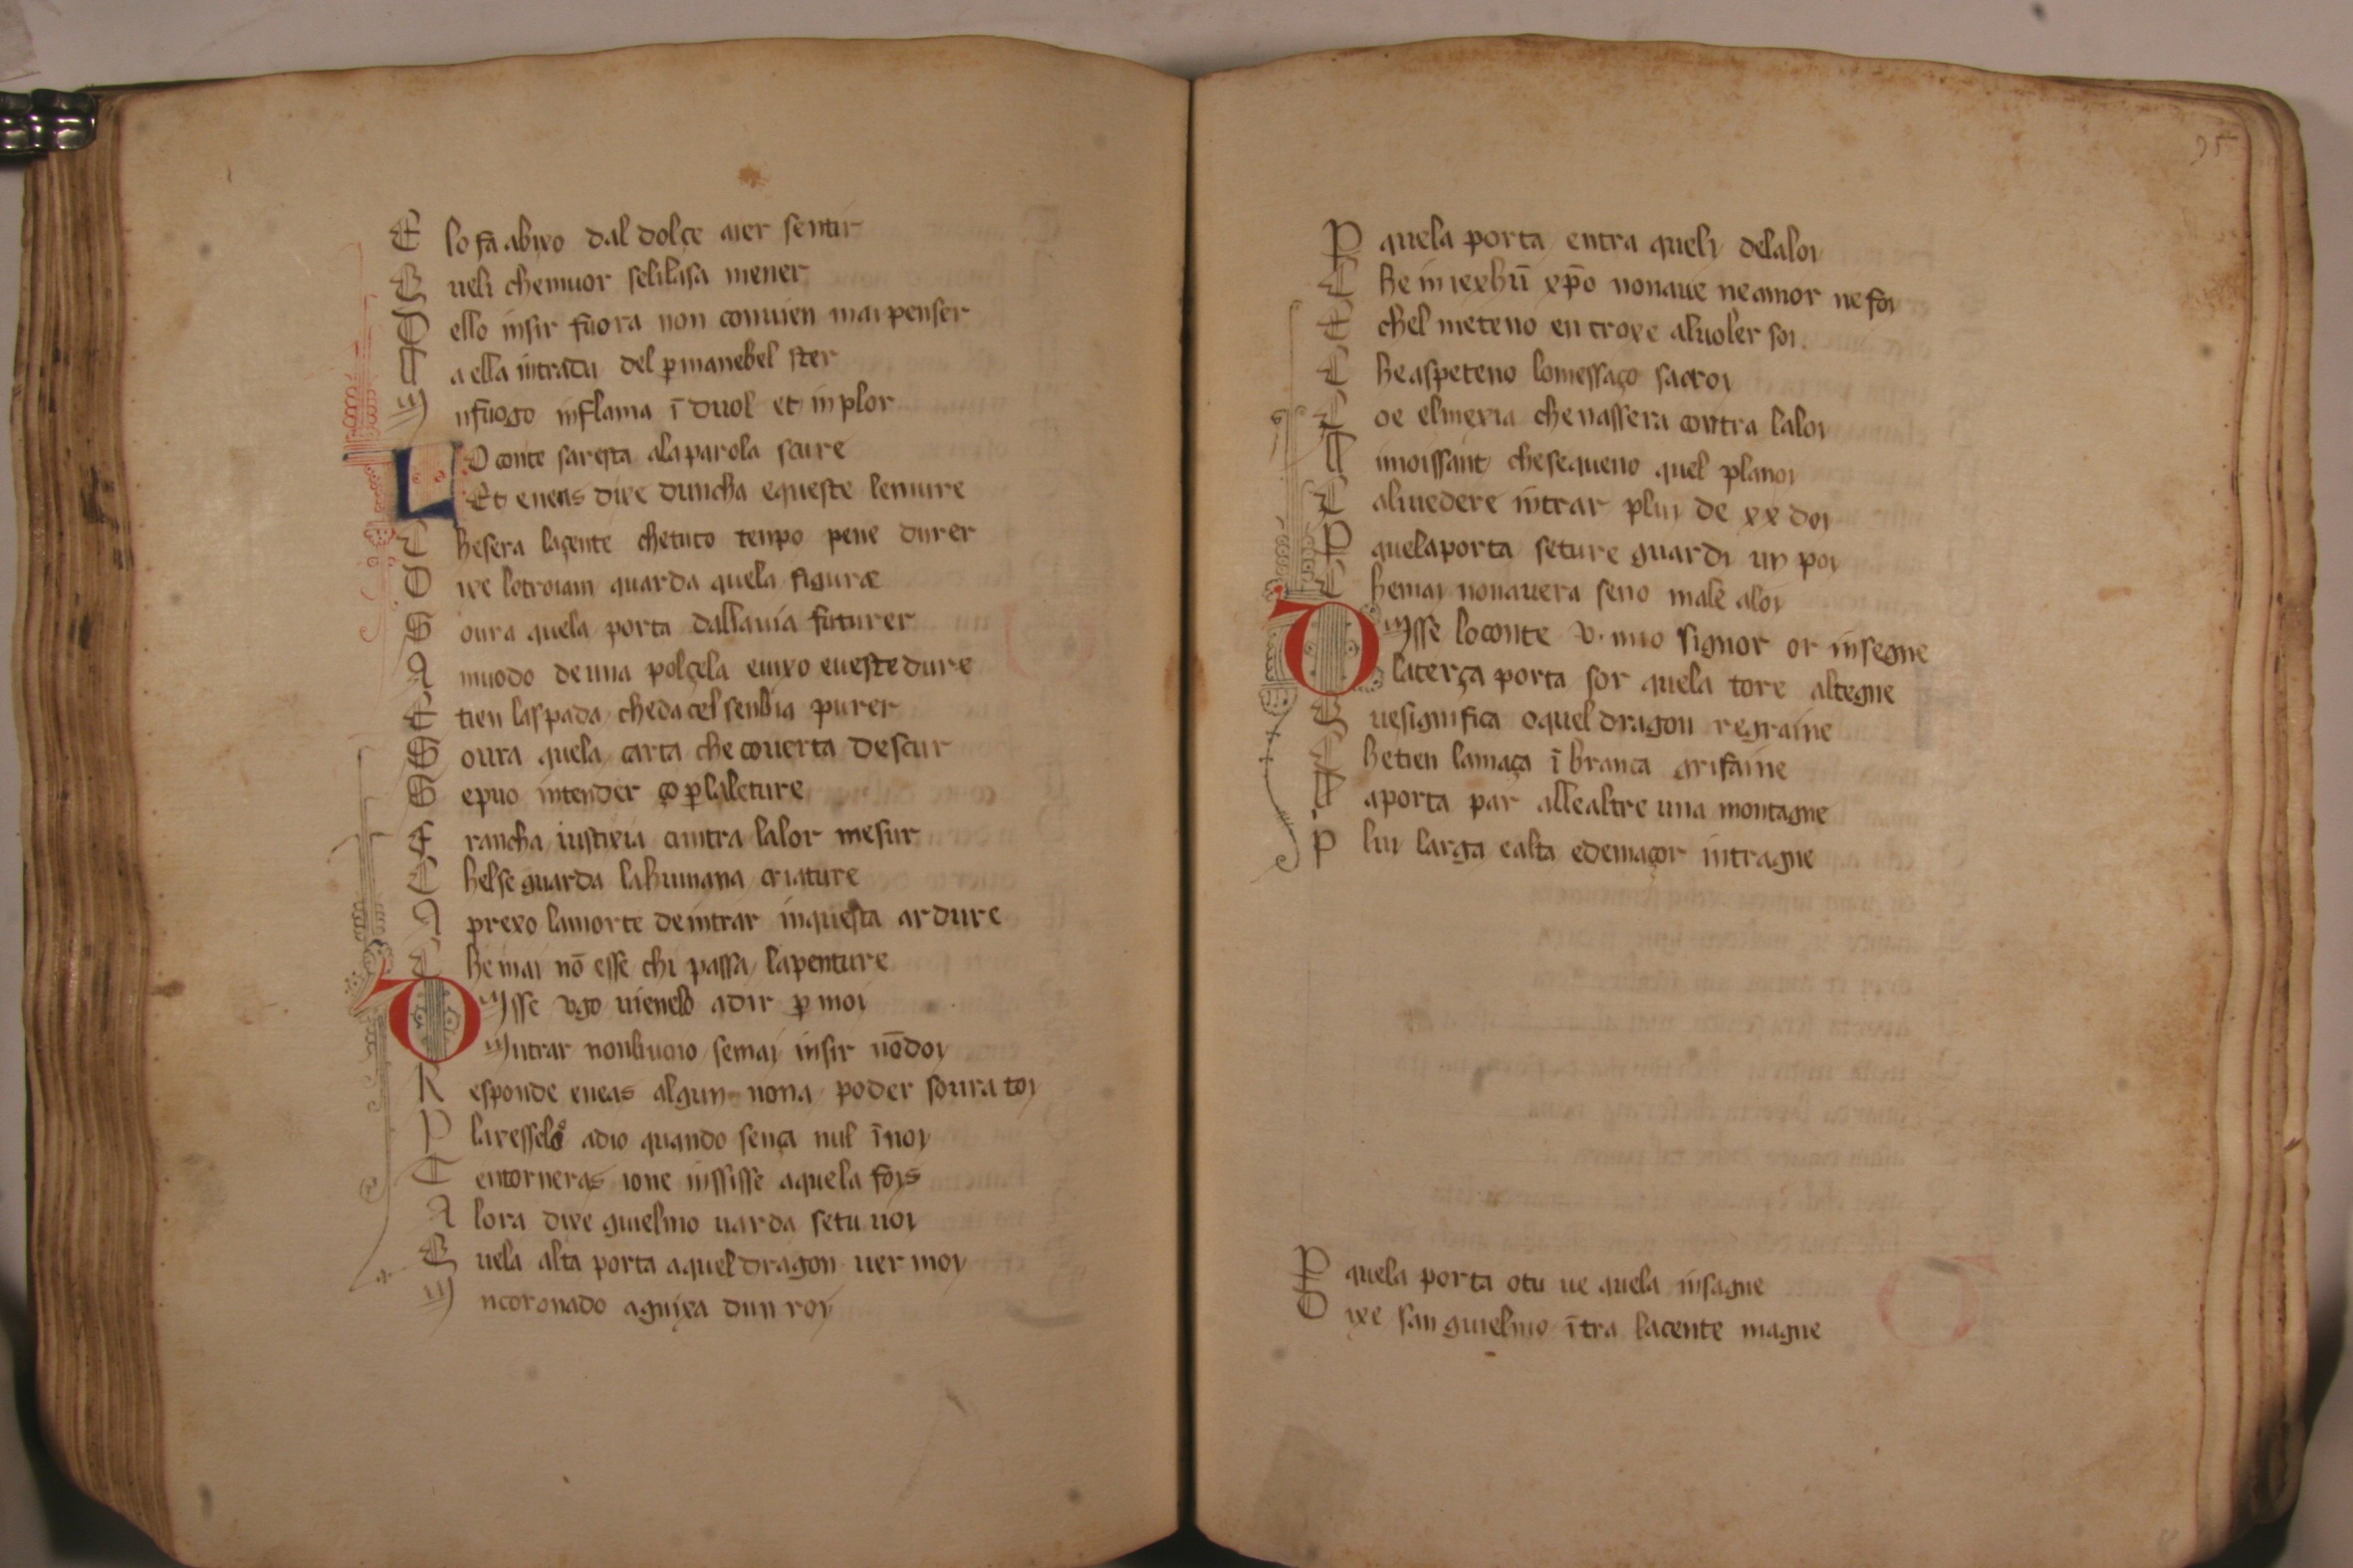 E lo fa abixo dal dolçe aier sentir
Q ueli chemuor selilasa mener
D ello insir fuora non conuien mai penser
M a ella intrada del pmanebel ster
I nfuogo inflama ī duol et inplor
LO conte saresta alaparola scure
Et eneas dixe duncha equeste lemure
C hesera laçente chetuto tenpo pene durer
D ixe lotroian guarda quela figura
S oura quela porta dallauia futurer
A muodo deuna polçela enixo eueste dure
E tien laspada chedacel senbia purer
S oura quela carta che couerta descur
S epuo intender ço plaleture
F rancha iustixia contra lalor mesur
C helse guarda lahumana criature
A prexo lamorte deintrar inquesta ardure
C he mai nō esse chi passa lapenture
DIsse vgo uienelo adir p moi
Intrar nonliuoio semai insir nōdoi
R esponde eneas algun nona poder soura toi
P laresselo adio quando sença nul īnoi
T entorneras ione inssisse aquela fois
A lora dixe guielmo uarda setu uoi
Q uela alta porta aquel dragon uer moi
I ncoronado aguixa dun roi
95
P quela porta entra queli delaloi
C he in iexhū xpō nonaue neamor ne foi
E chel meteno en croxe aluoler soi
C heaspeteno lomessaço sacroi
C oe elmexia chenassera contra laloi
M inoissant chesequeno quel planoi
E aluedere intrar plui de xx doi
P quelaporta seture guardi un poi
C hemai nonauera seno male aloi
DIsse loconte v. mio signor or insegne
laterça porta sor quela tore altegne
Q uesignifica oquel dragon regraine
C hetien lamaça ī branca grifaine
M aporta par allealtre una montagne
P lui larga ealta edemaçor intragne
P quela porta otu ue quela insagne
D ixe san guielmo ītra lacente magne